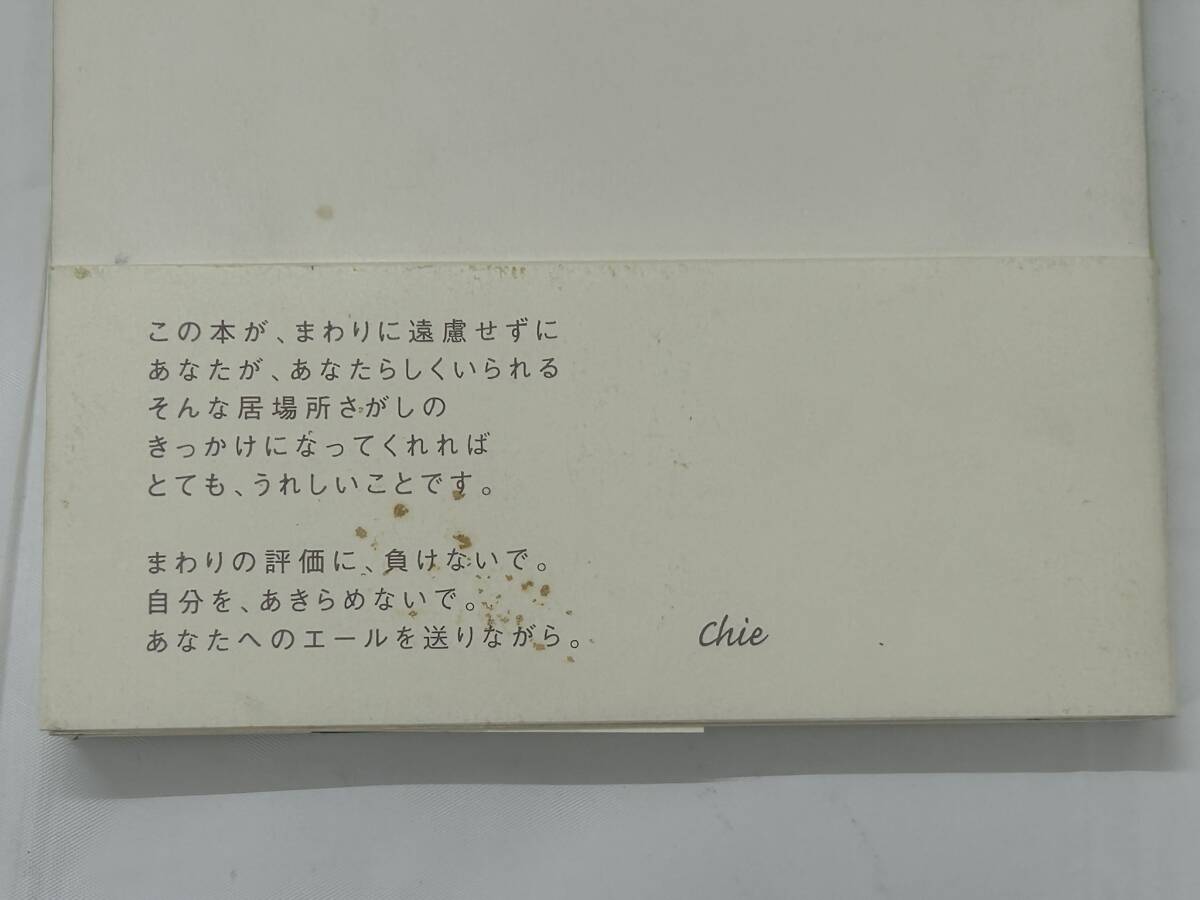 この本が、まわりに遠慮せずに
あなたが、あなたらしくいられる
そんな居場所さがしの
きっかけになってくれれば
とても、うれしいことです。
まわりの評価に、負けないで。
自分を、あきらめないで。
あなたへのエールを送りながら。
Chie